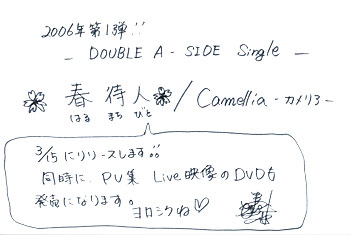 2006年第1弾!!
– DOUBLE A - SIDE Single –
春待人 / Camellia -カメリア-
はる まち びと
3/15にリリースします!!
同時に、PV集 Live映像のDVDも
発売になります。
ヨロシクね♡